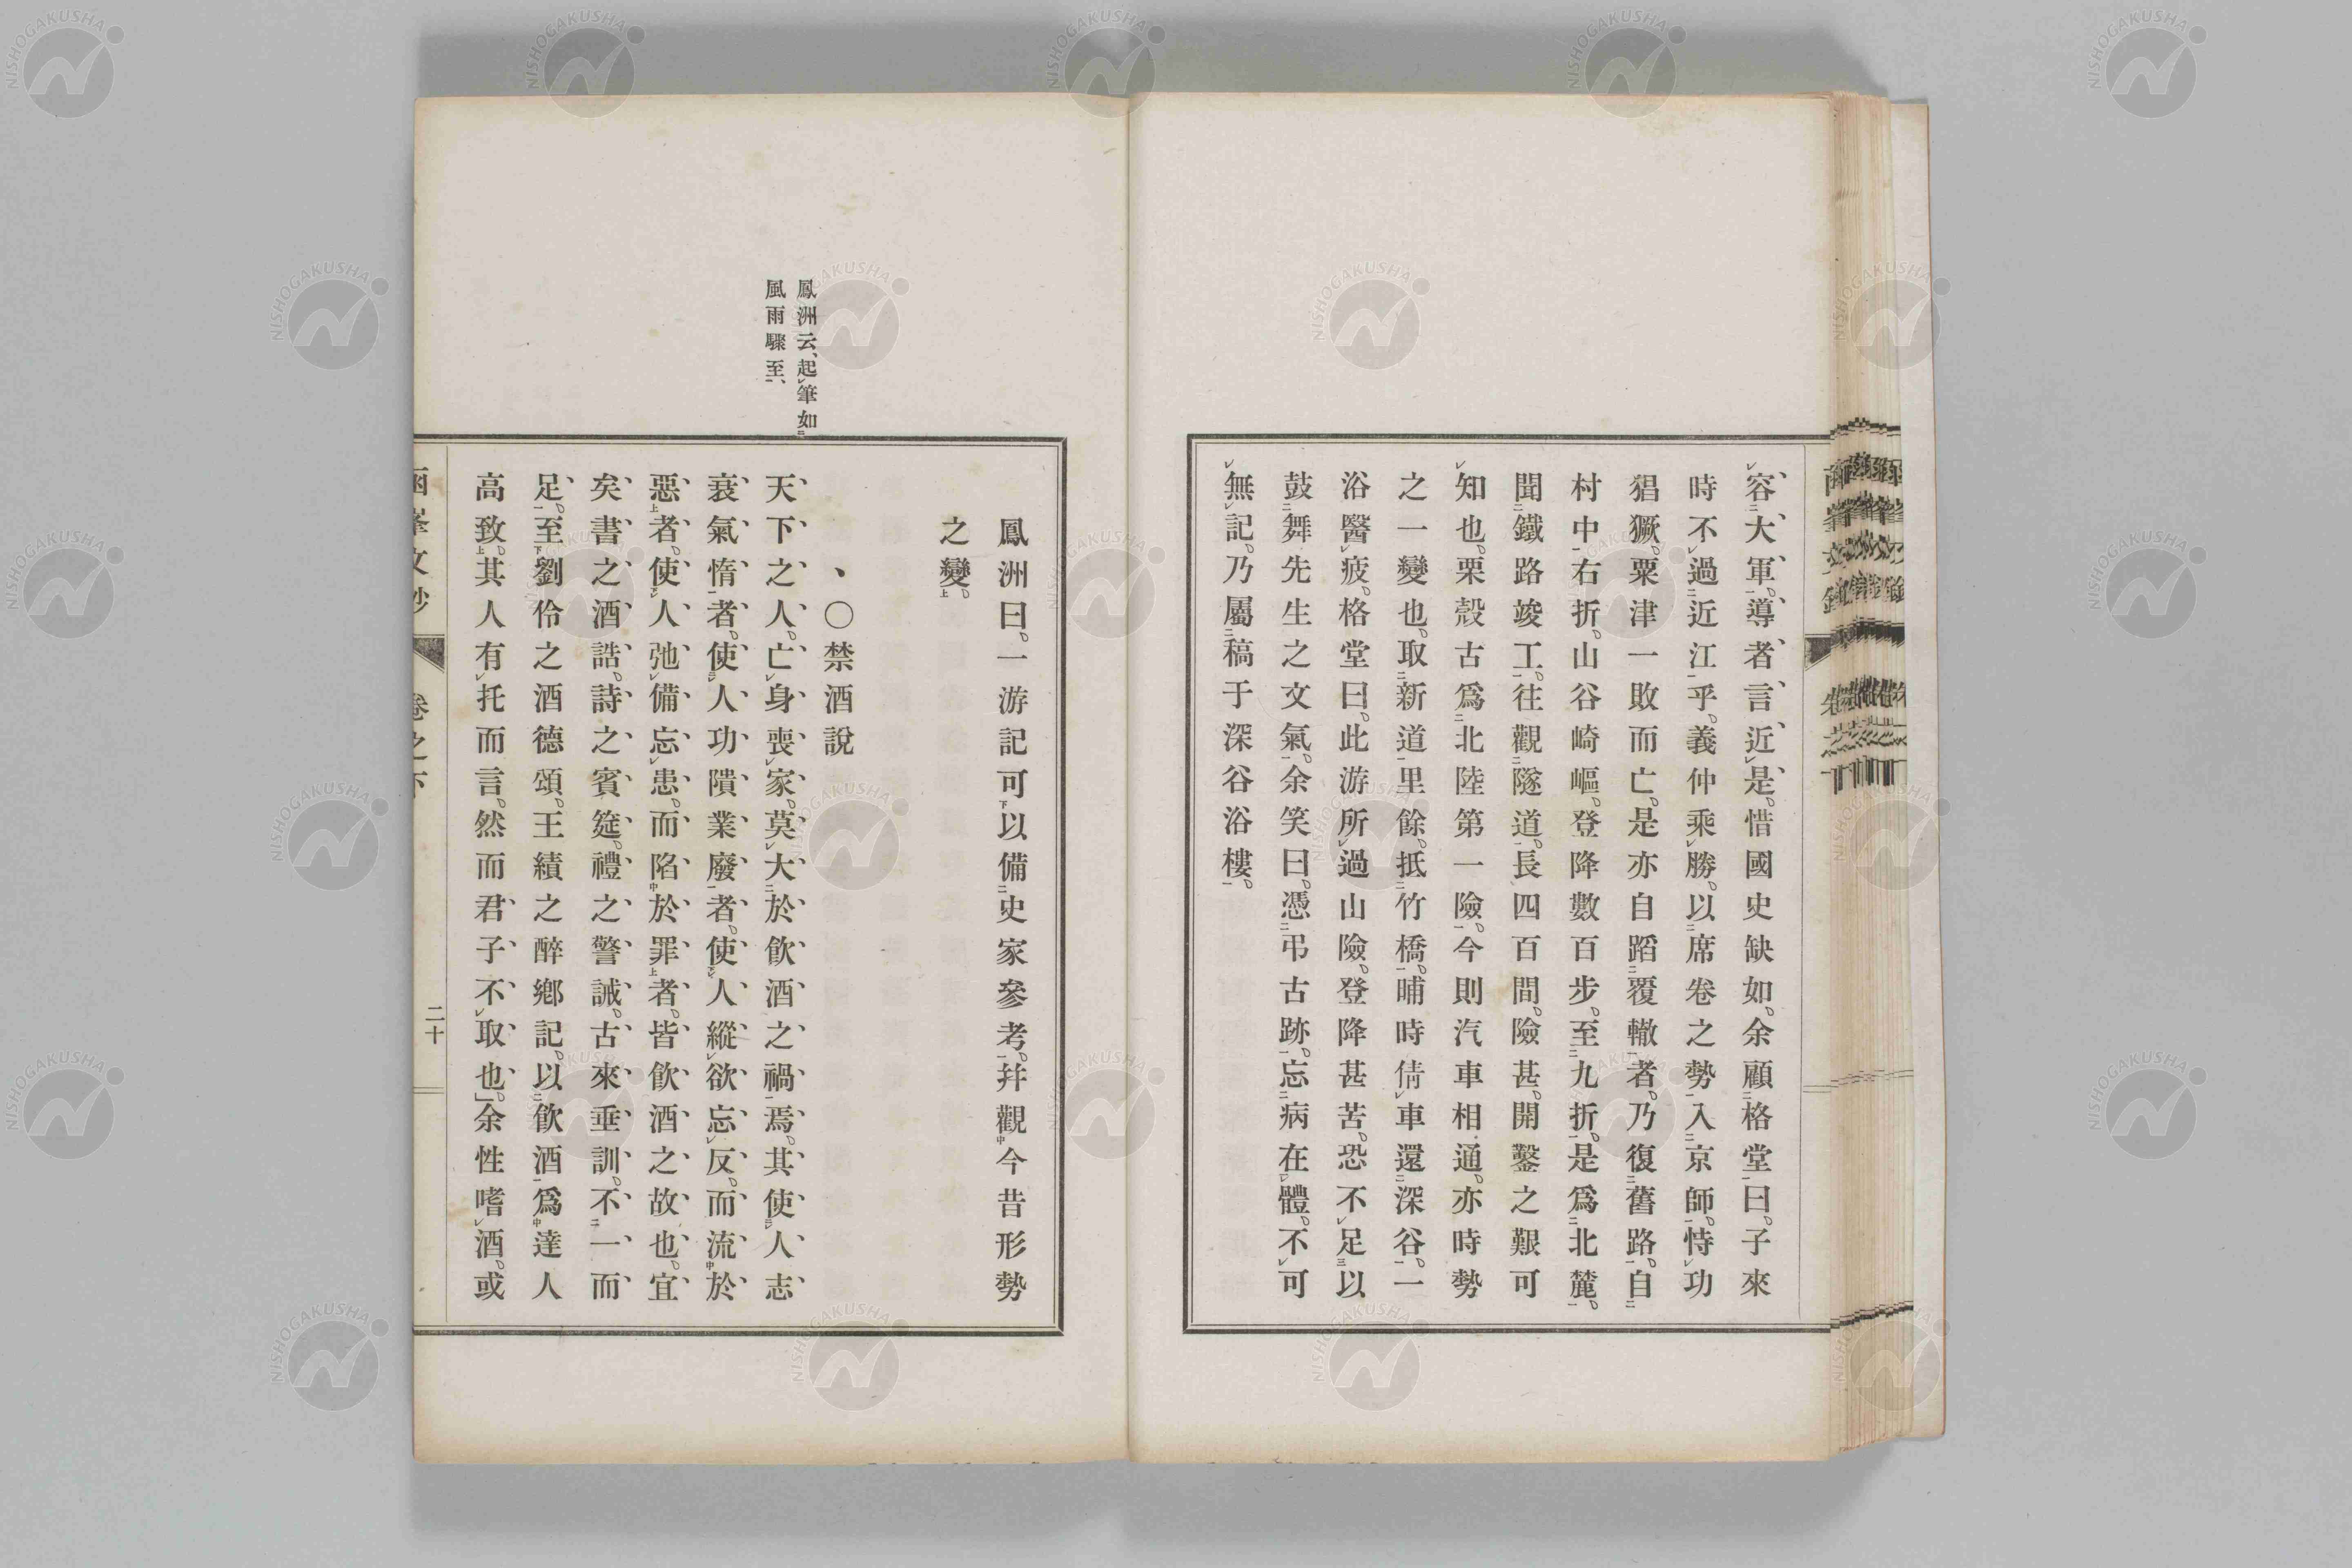 容大軍。導者言近是。惜國史缺如。余顧格堂曰。子來
時不過近江乎。義仲乘勝。以席卷之勢入京師。恃功
猖獗。粟津一敗而亡。是亦自蹈覆轍者。乃復舊路。自
村中右折。山谷崎嶇。登降數百步。至九折。是爲北麓。
聞鐵路竣工。往觀隧道。長四百間。險甚。開鑿之艱可
知也。栗殼古爲北陸第一險。今則汽車相通。亦時勢
之一變也。取新道里餘。抵竹橋。晡時倩車還深谷。一
浴醫疲。格堂曰。此游所過山險。登降甚苦。恐不足以
鼓舞先生之文氣。余笑曰。憑弔古跡。忘病在體。不可
無記。乃屬稿于深谷浴樓。
鳳洲曰。一游記可以備史家參考。幷觀今昔形勢
之變。
鳳洲云、起筆如
風雨驟至、
、〇禁酒說
天下之人。亡身喪家。莫大於飮酒之禍焉。其使人志
衰氣惰者。使人功隤業廢者。使人縱欲忘反。而流於
惡者。使人弛備忘患。而陷於罪者。皆飮酒之故也。宜
矣書之酒誥。詩之賓筵。禮之警誡。古來垂訓。不一而
足。至劉伶之酒德頌。王績之醉鄕記。以飮酒爲達人
高致。其人有托而言。然而君子不取也。」余性嗜酒。或
二十